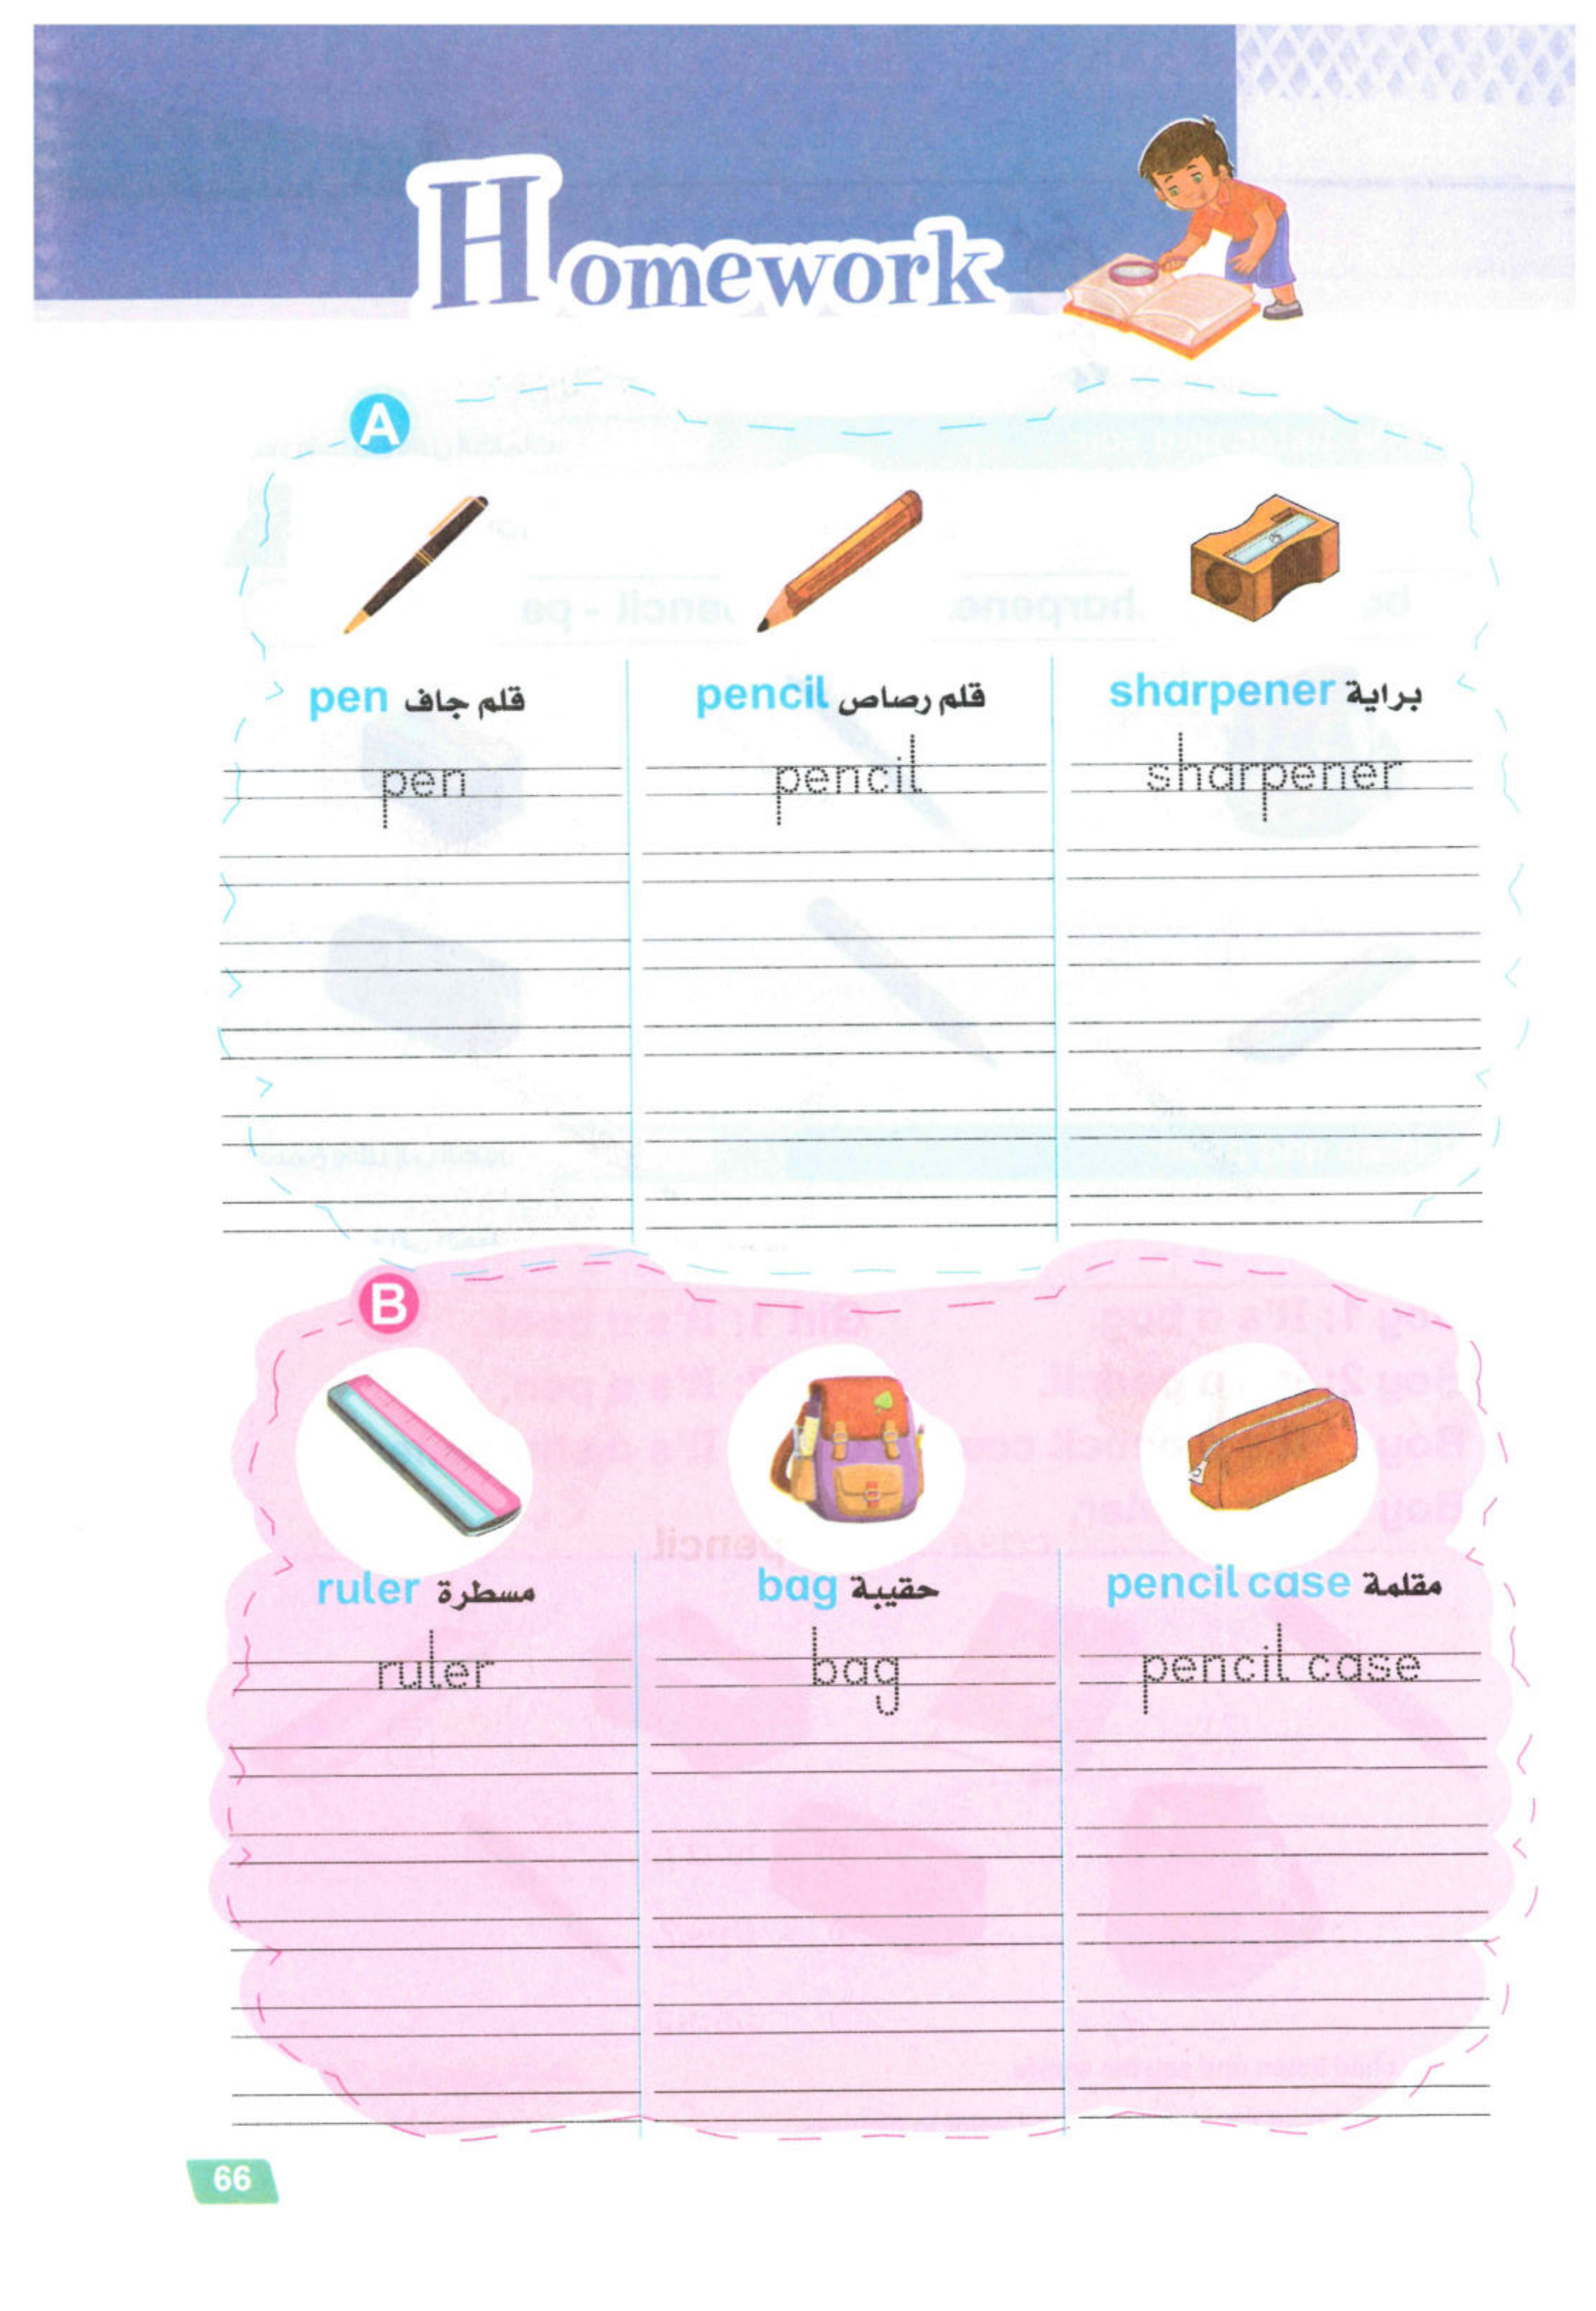 Homework
A
pen قلم جاف
pencil قلم رصاص
sharpener براية
pen
pencil
sharpener
B
ruler مسطرة
bag حقيبة
pencil case مقلمة
ruler
bag
pencil case
66